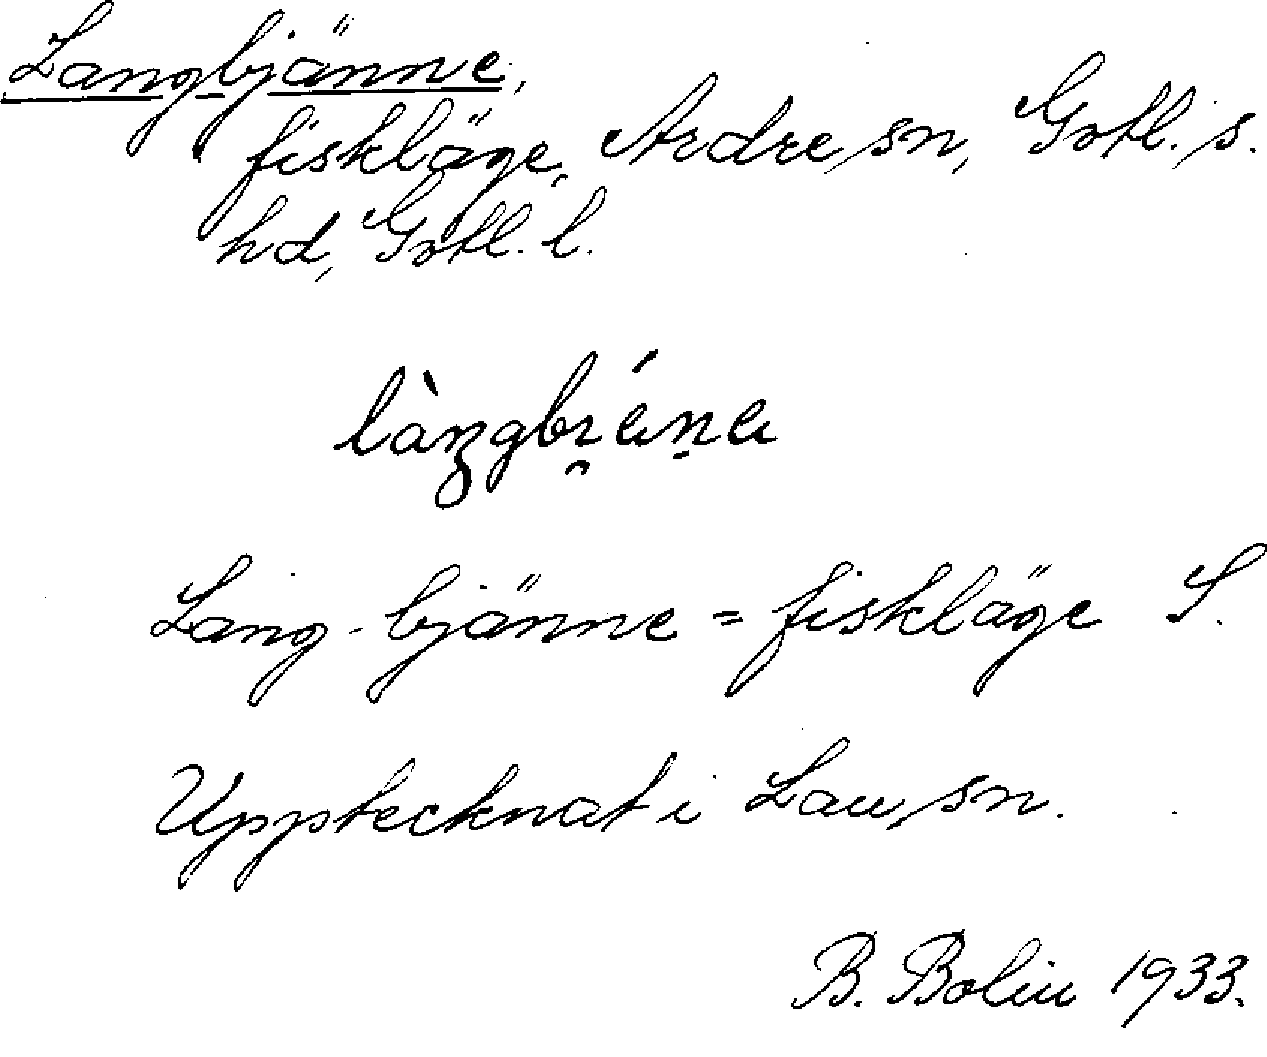 Langbjänne,
fiskläge, Ardre sn, Gotl. s.
hd, Gotl. l.
Lang-bjänne = fiskläge S.
Upptecknat i Lau sn.
B. Bolin 1933.